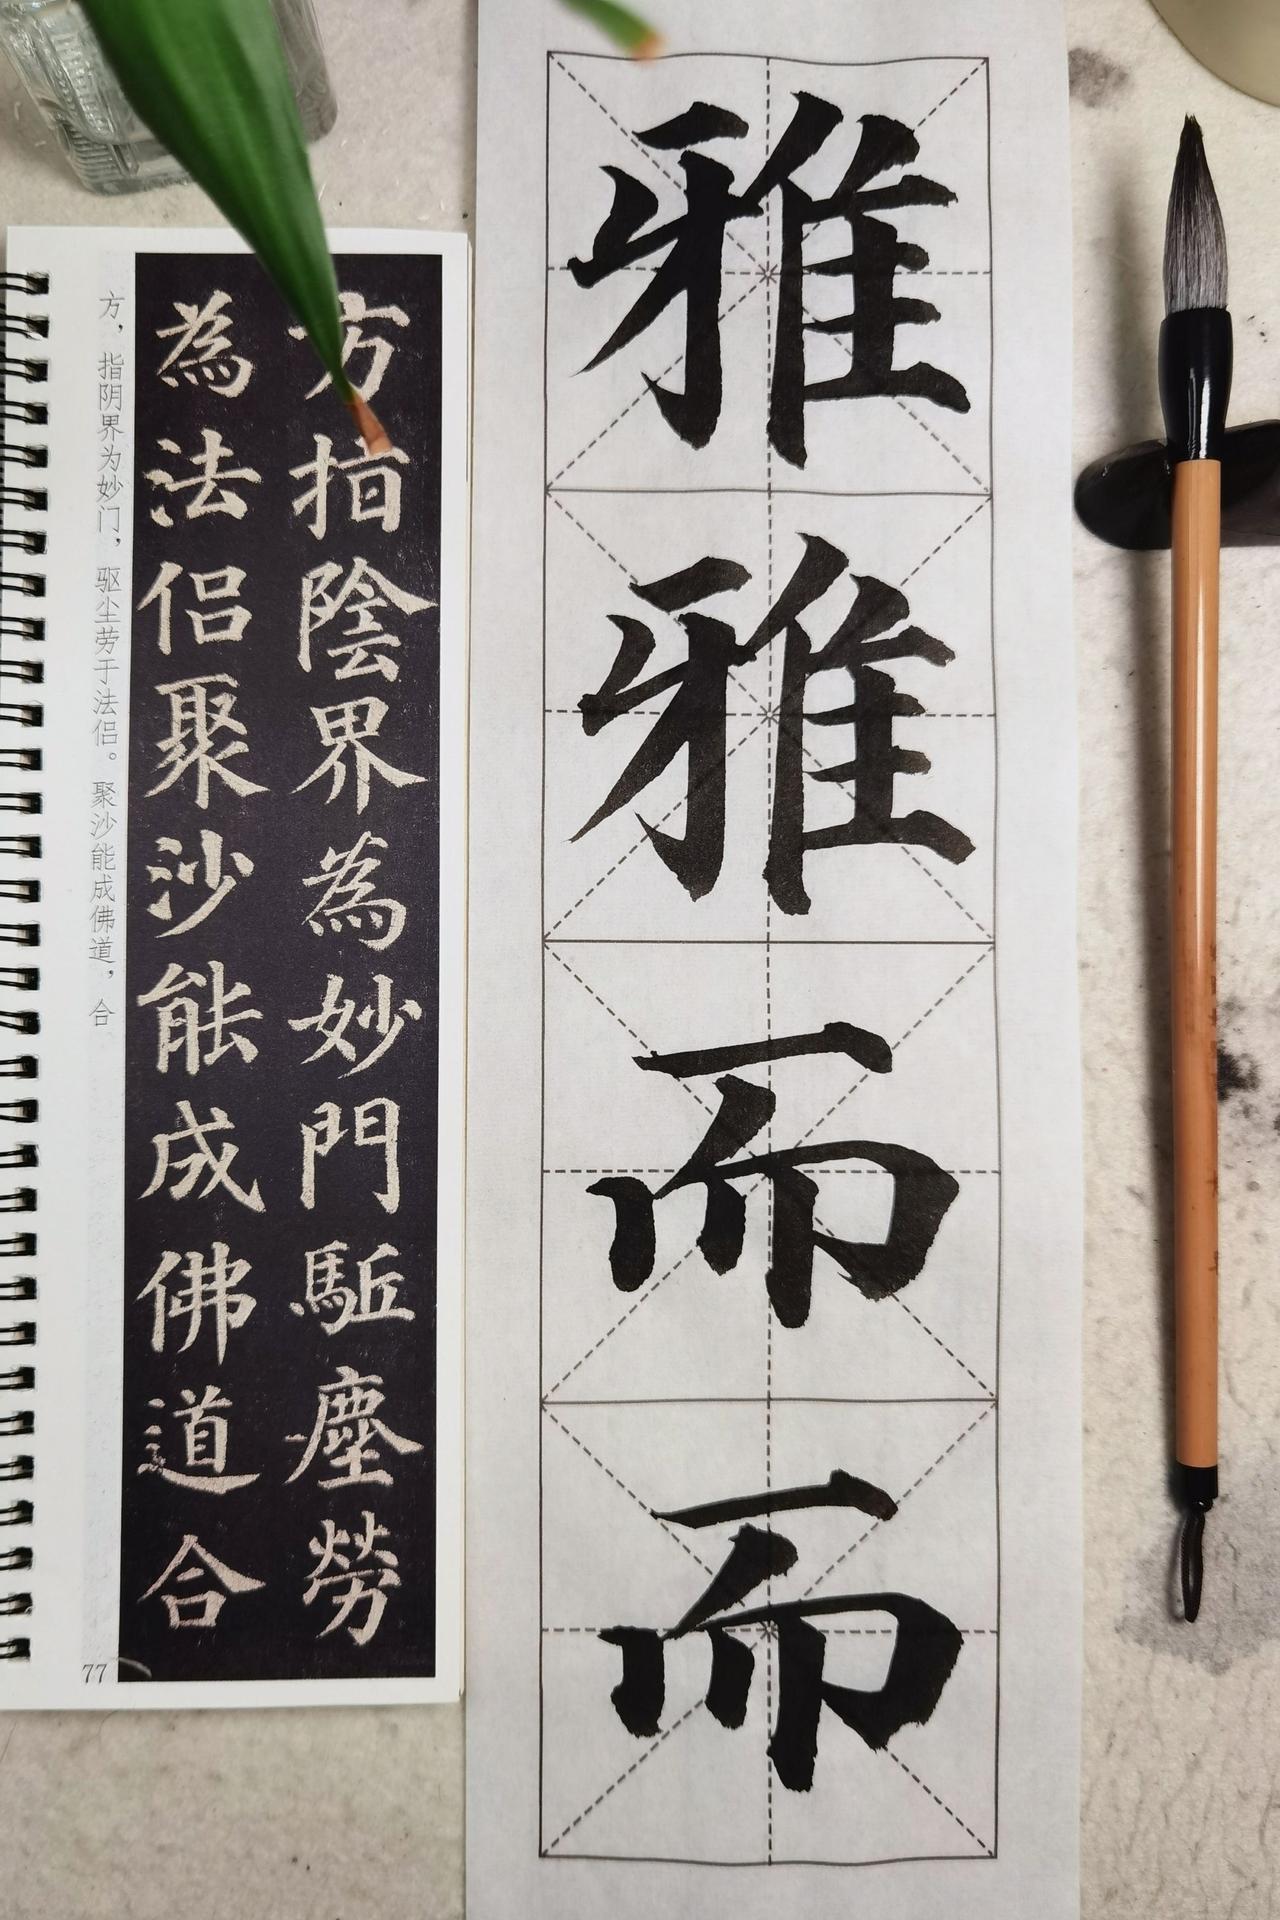 雅雅而而
方指陰界為妙門駈塵勞
為法侶聚沙能成佛道合
方，指阴界为妙门，驱尘劳于法侣。聚沙能成佛道，合
77